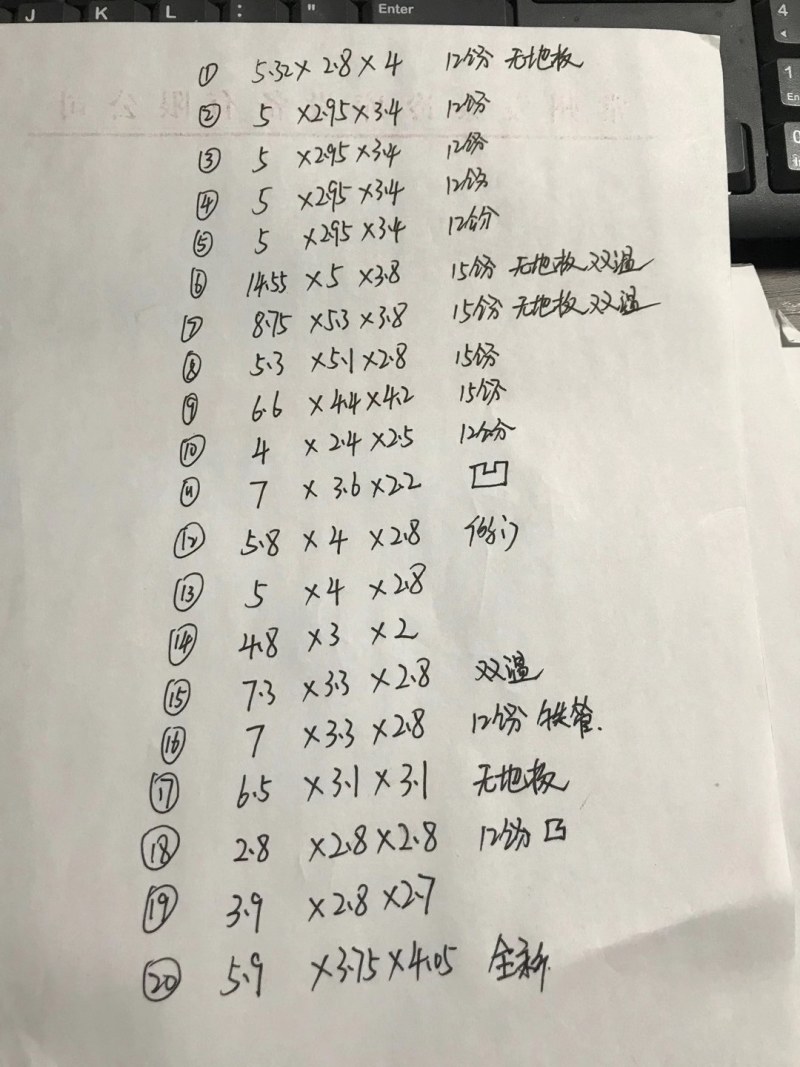 J K L : " Enter
4
1
0
① 5.32 × 2.8 × 4 12公分 无地板
② 5 × 2.95 × 3.4 12公分
③ 5 × 2.95 × 3.4 12公分
④ 5 × 2.95 × 3.4 12公分
⑤ 5 × 2.95 × 3.4 12公分
⑥ 14.55 × 5 × 3.8 15公分 无地板 双温
⑦ 8.75 × 5.3 × 3.8 15公分 无地板 双温
⑧ 5.3 × 5.1 × 2.8 15公分
⑨ 6.6 × 4.4 × 4.2 15公分
⑩ 4 × 2.4 × 2.5 12公分
⑪ 7 × 3.6 × 2.2 凹
⑫ 5.8 × 4 × 2.8 门
⑬ 5 × 4 × 2.8
⑭ 4.8 × 3 × 2
⑮ 7.3 × 3.3 × 2.8 双温
⑯ 7 × 3.3 × 2.8 12公分 铁管.
⑰ 6.5 × 3.1 × 3.1 无地板
⑱ 2.8 × 2.8 × 2.8 12公分 凸
⑲ 3.9 × 2.8 × 2.7
⑳ 5.9 × 3.75 × 4.05 全新